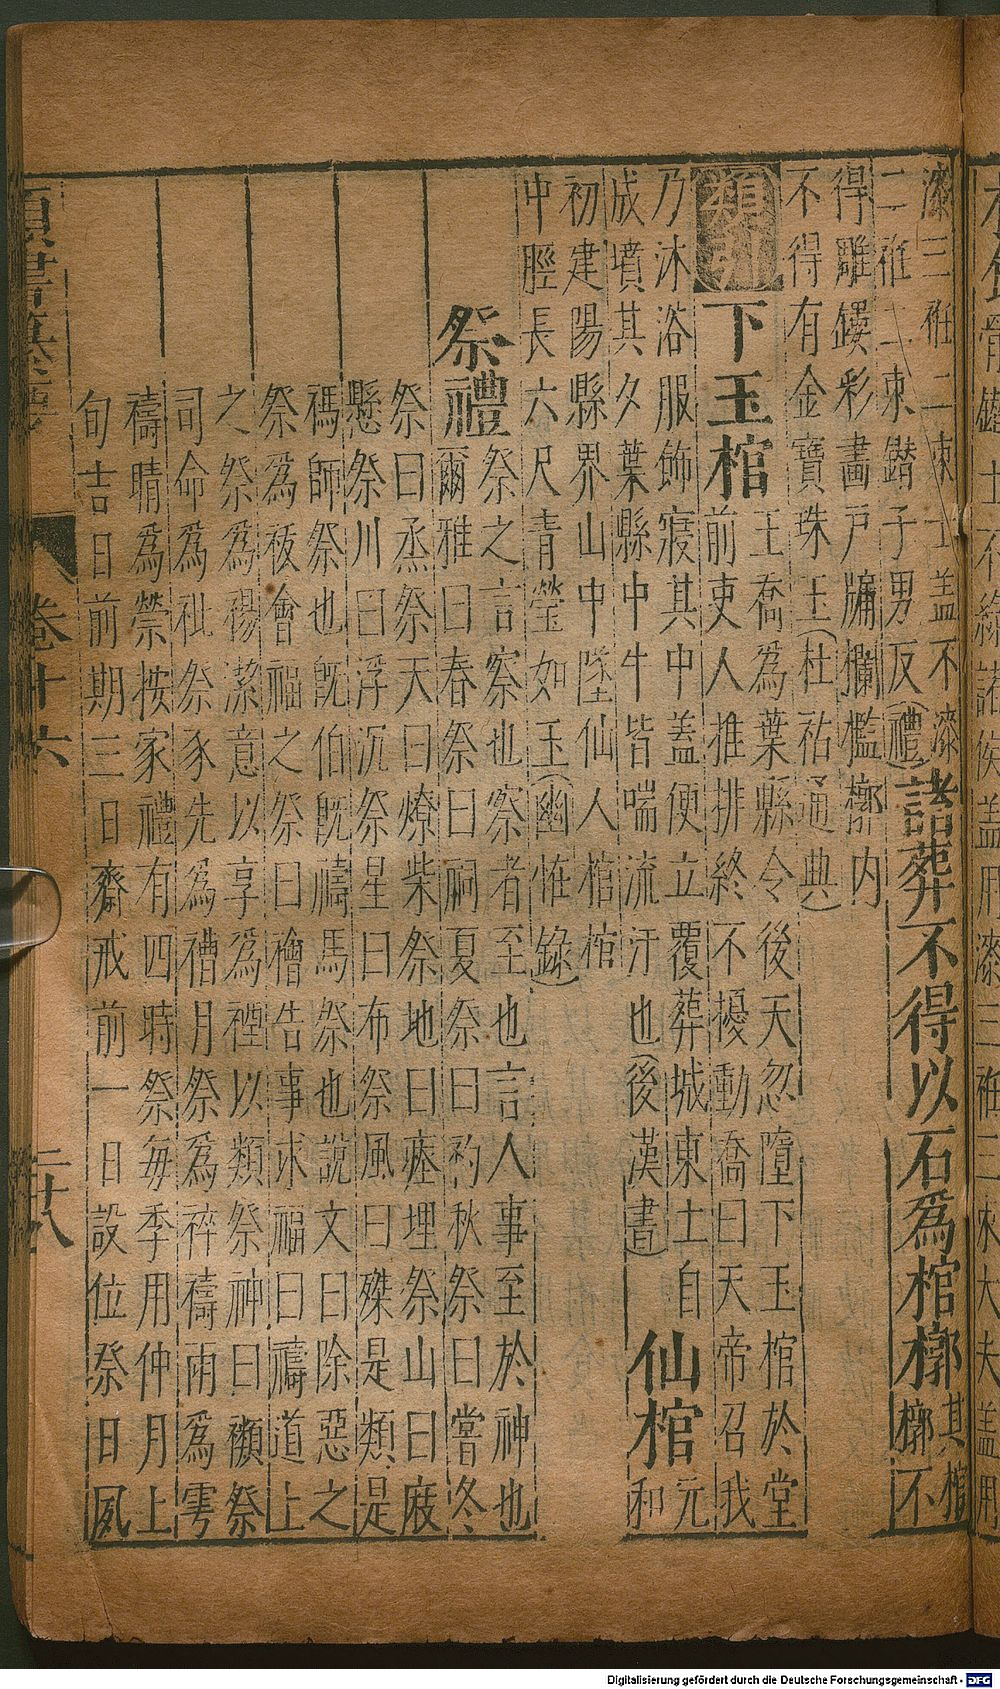 漆三袵二束士盖不漆
二袵二束鐕子男反(禮)
諸葬不得以石爲棺槨
其棺
槨不
得雕鏤彩畫戶牖欄檻槨内
不得有金寶珠玉(杜祐通典)
類記
下玉棺
王喬爲葉縣令後天忽墮下玉棺於堂
前吏人推排終不擾動喬曰天帝召我
乃沐浴服飾寢其中盖便立覆葬城東土自
成墳其夕葉縣中牛皆喘流汗也(後漢書)
仙棺
元
和
初建陽縣界山中墜仙人棺棺
中脛長六尺青瑩如玉(幽怪錄)
祭禮
祭之言察也察者至也言人事至於神也
爾雅曰春祭曰祠夏祭曰礿秋祭曰嘗冬
祭曰烝祭天曰燎柴祭地曰瘞埋祭山曰庪
懸祭川曰浮沉祭星曰布祭風曰磔是類是
禡師祭也旣伯旣禱馬祭也說文曰除惡之
祭爲祓會福之祭曰禬告事求福曰禱道上
之祭爲禓潔意以享爲禋以類祭神曰禷祭
司命爲祉祭豕先爲䄚月祭爲祽禱雨爲雩
禱晴爲禜按家禮有四時祭每季用仲月上
旬吉日前期三日齋戒前一日設位祭日夙
類書纂要
卷十六
二十八
Digitalisierung gefördert durch die Deutsche Forschungsgemeinschaft - DFG